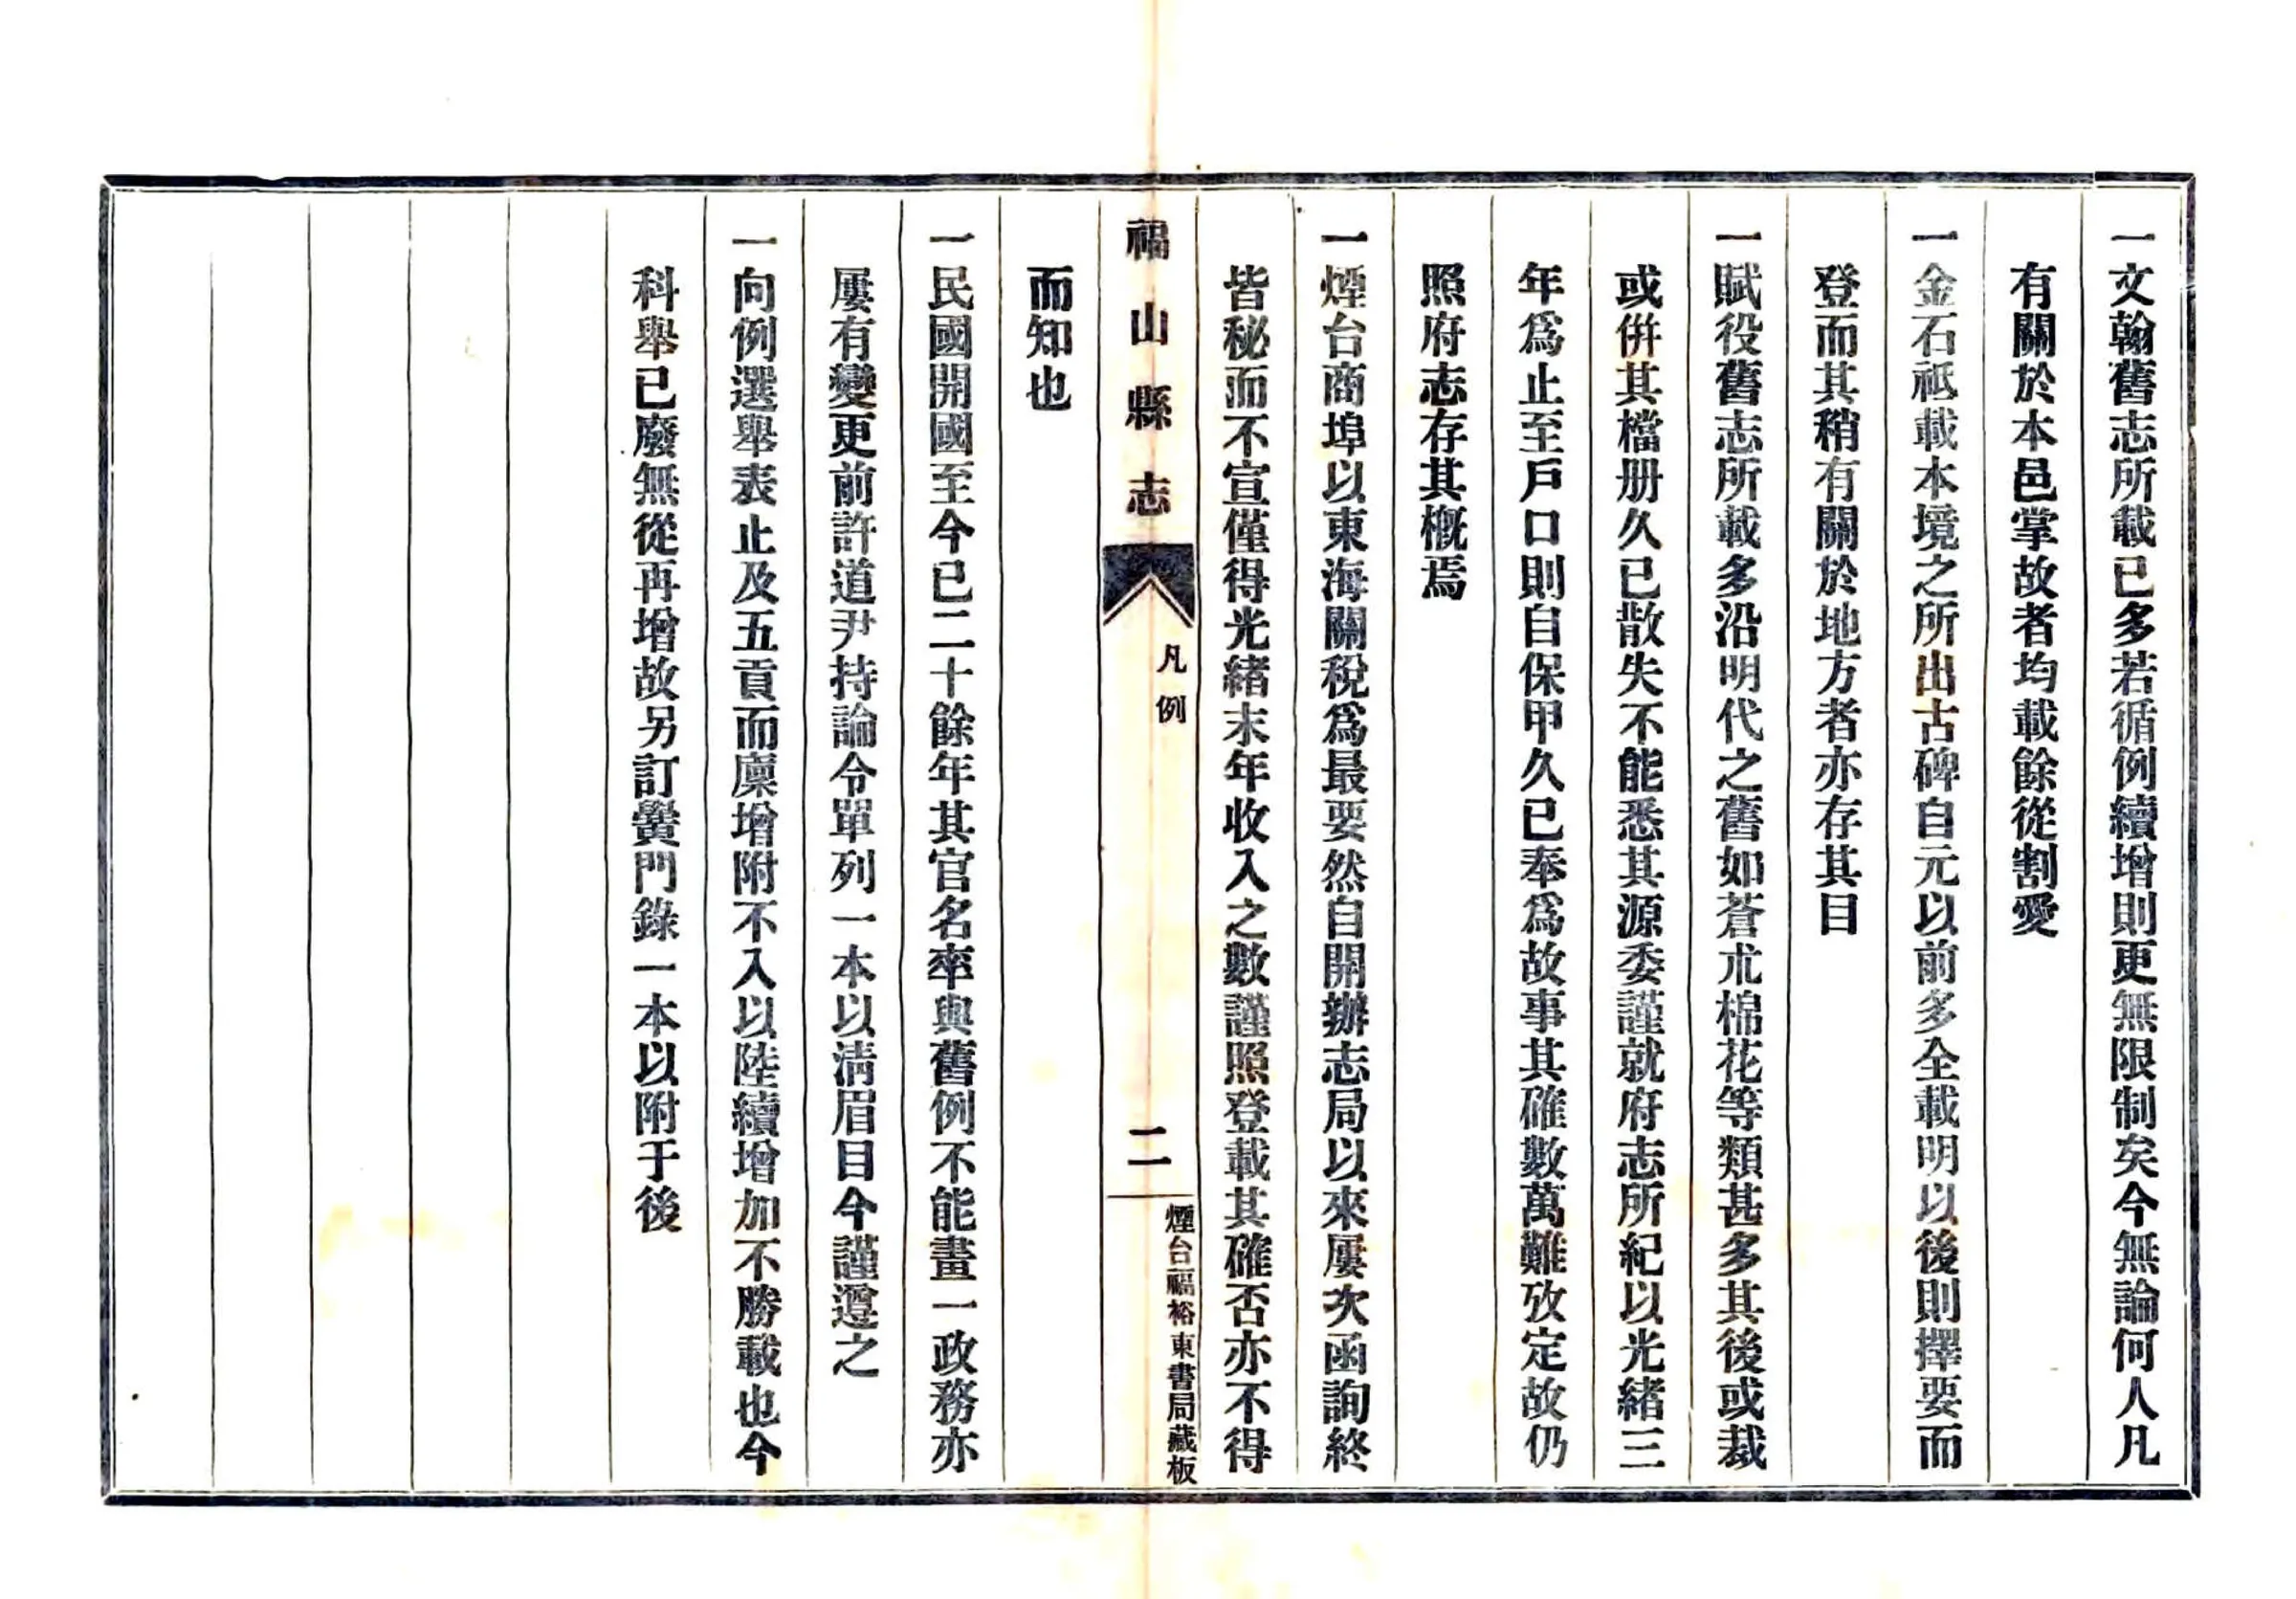 一文翰舊志所載已多若循例續增則更無限制矣今無論何人凡
有關於本邑掌故者均載餘從割愛
一金石祗載本境之所出古碑自元以前多全載明以後則擇要而
登而其稍有關於地方者亦存其目
一賦役舊志所載多沿明代之舊如蒼朮棉花等類甚多其後或裁
或併其檔册久已散失不能悉其源委謹就府志所紀以光緒三
年爲止至戶口則自保甲久已奉爲故事其確數萬難攷定故仍
照府志存其槪焉
一煙台商埠以東海關稅爲最要然自開辦志局以來屢次函詢終
皆秘而不宣僅得光緒末年收入之數謹照登載其確否亦不得
福山縣志
凡例
二
煙台福裕東書局藏板
而知也
一民國開國至今已二十餘年其官名率與舊例不能畫一政務亦
屢有變更前許道尹持論令單列一本以淸眉目今謹遵之
一向例選舉表止及五貢而廩增附不入以陸續增加不勝載也今
科舉已廢無從再增故另訂黌門錄一本以附于後